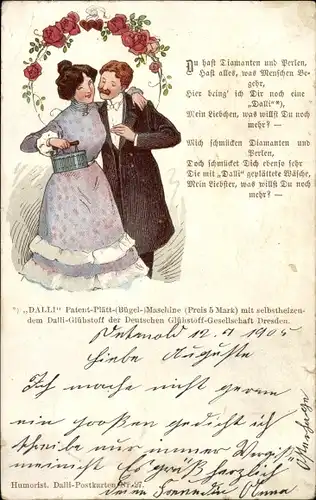 Du hast Diamanten und Perlen,
Hast alles, was Menschen Be-
gehr,
Hier bring' ich Dir noch eine
„Dalli"*),
Mein Liebchen, was willst Du noch
mehr? —
Mich schmücken Diamanten und
Perlen,
Doch schmückt Dich ebenso sehr
Die mit „Dalli" geplättete Wäsche,
Mein Liebster, was willst Du noch
mehr? —
*) „DALLI" Patent-Plätt-(Bügel-)Maschine (Preis 5 Mark) mit selbstheizen-
dem Dalli-Glühstoff der Deutschen Glühstoff-Gesellschaft Dresden.
Detmold 12. 1905
Liebe Auguste
Ich mache nicht gerne
ein großes gedicht ich
schreibe nur immer Vergiß
meinnicht Es grüßt herzlich
deine Freundin
Humorist. Dalli-Postkarten Nr. 27.